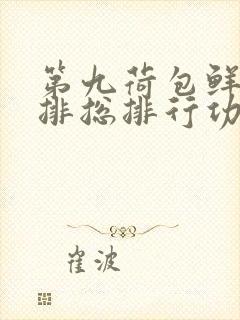 第九荷包鲜
排挖排行功
崔波